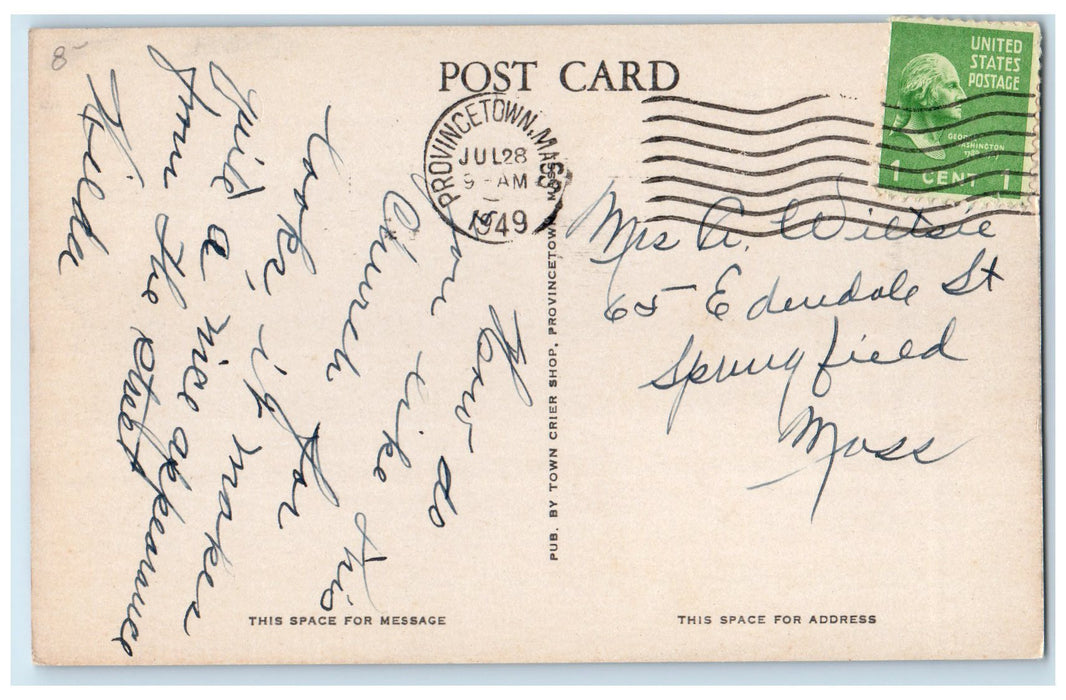 8-
POST CARD
UNITED STATES POSTAGE
1 CENT 1
PROVINCETOWN, MASS
JUL 28
9 - AM
1949
How do
you like this
Church for
looks, it makes
quite a nice appearance
from the street
Hilda
PUB. BY TOWN CRIER SHOP, PROVINCETOWN, MASS.
Mrs A. Wiltsie
65 Edendale St
Springfield
Mass
THIS SPACE FOR MESSAGE
THIS SPACE FOR ADDRESS